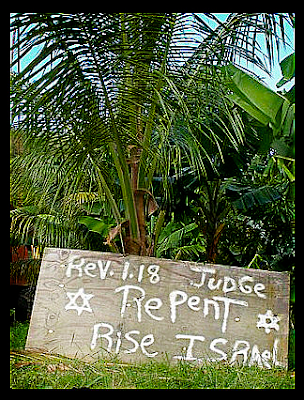 Rev. 1.18 Judge
Repent
Rise Israel